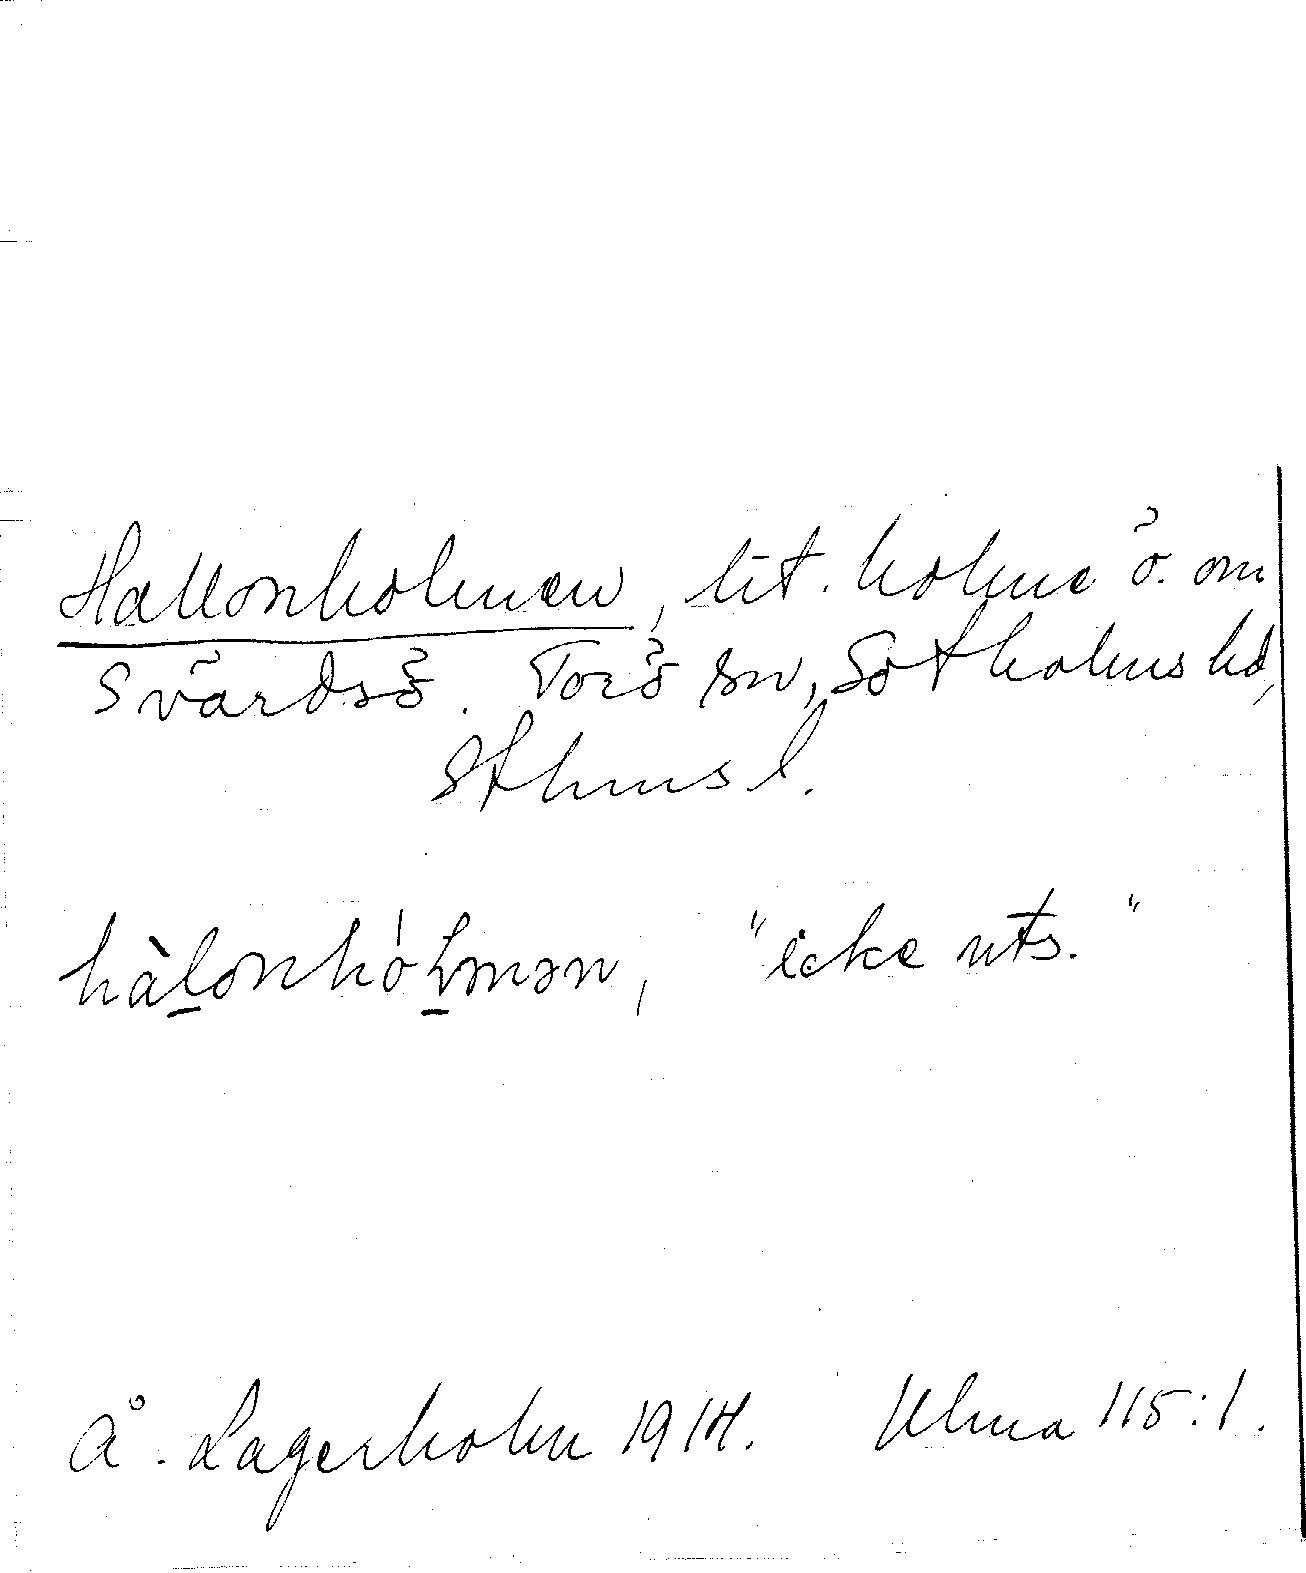 Hallonholmen, lit. holme ö. om
Svärdsö. Torö sn, Sotholms hd,
Sthms l.
hàlonhólmən, "icke uts."
Å. Lagerholm 1914. Ulma 115:1.